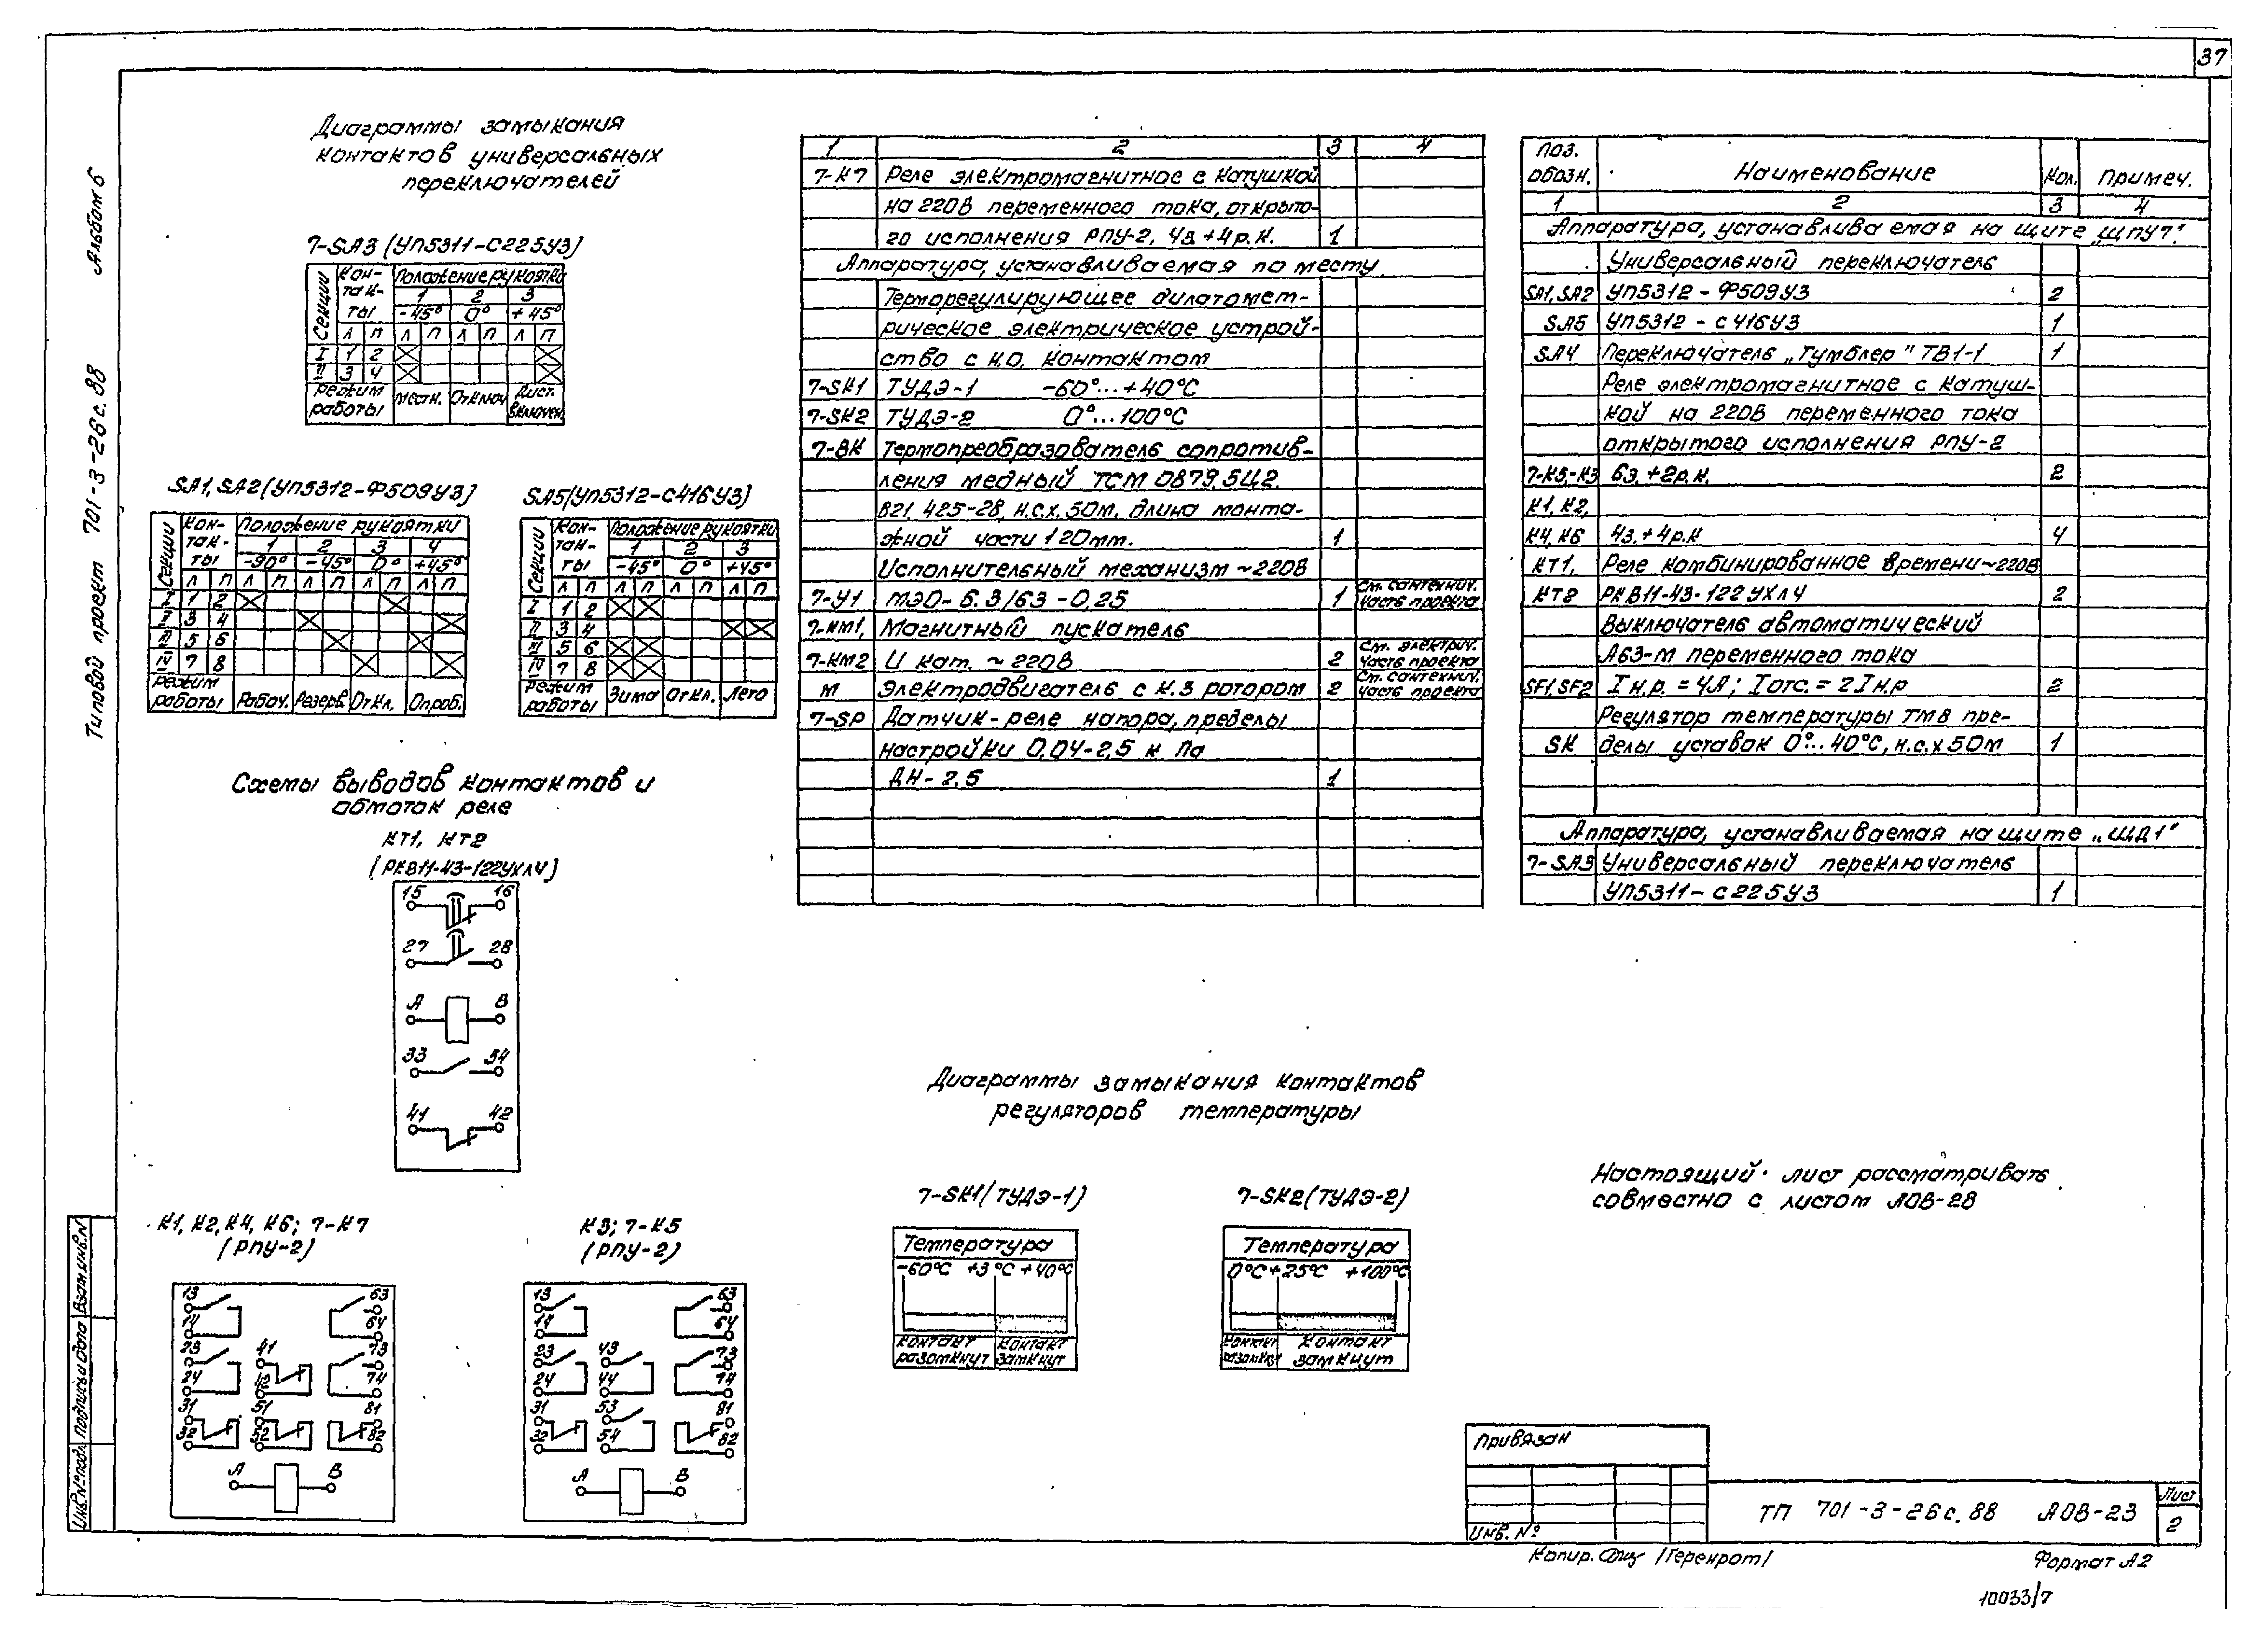 37
Альбом 6
Типовой проект 701-3-26с.88
Диаграммы замыкания
контактов универсальных
переключателей
7-SA3 (УП5311-С225У3)
Секции
Кон-
так-
ты
Положение рукоятки
1 2 3
-45° 0° +45°
Л П Л П Л П Л П
I 1 2
II 3 4
Режим
работы
Местн. Отключ. Дист.
включен.
SA1, SA2 (УП5312-Ф509У3)
Секции
Кон-
так-
ты
Положение рукоятки
1 2 3 4
-90° -45° 0° +45°
Л П Л П Л П Л П Л П
I 1 2
II 3 4
III 5 6
IV 7 8
Режим
работы
Рабоч. Резерв. Откл. Опроб.
SA5 (УП5312-С416У3)
Секции
Кон-
так-
ты
Положение рукоятки
1 2 3
-45° 0° +45°
Л П Л П Л П Л П
I 1 2
II 3 4
III 5 6
IV 7 8
Режим
работы
Зима Откл. Лето
Схемы выводов контактов и
обмоток реле
КТ1, КТ2
(РКВ11-43-122УХЛ4)
15 16
27 28
А В
33 34
41 42
К1, К2, К4, К6; 7-К7
(РПУ-2)
13 63
14 64
23 41 73
24 42 74
31 51 81
32 52 82
А В
К3; 7-К5
(РПУ-2)
13 63
14 64
23 43 73
24 44 74
31 53 81
32 54 82
А В
1 2 3 4
7-К7 Реле электромагнитное с катушкой
на 220В переменного тока, открыто-
го исполнения РПУ-2, 4з.+4р.к. 1
Аппаратура, устанавливаемая по месту.
Терморегулирующее дилатомет-
рическое электрическое устрой-
ство с н.о. контактом
7-SK1 ТУДЭ-1 -60°...+40°С
7-SK2 ТУДЭ-2 0°...100°С
7-ВК Термопреобразователь сопротив-
ления медный ТСМ 0879, 5Ц2.
821.425-28, н.с.х. 50м, длина монта-
жной части 120мм. 1
Исполнительный механизм ~220В
7-У1 МЭО-6.3/63-0,25 1 См. сантехнич. часть проекта
7-КМ1, Магнитный пускатель
7-КМ2 U кат. ~ 220В 2 См. электрич. часть проекта
М Электродвигатель с к.з ротором 2 См. сантехнич. часть проекта
7-SP Датчик-реле напора, пределы
настройки 0,04-2,5 кПа
ДН-2,5 1
Поз.
обозн. Наименование Кол. Примеч.
1 2 3 4
Аппаратура, устанавливаемая на щите „ЩПУ7".
Универсальный переключатель
SA1, SA2 УП5312-Ф509У3 2
SA5 УП5312-С416У3 1
SA4 Переключатель „Тумблер" ТВ1-1 1
Реле электромагнитное с катуш-
кой на 220В переменного тока
открытого исполнения РПУ-2
7-К5,-К3 6з.+2р.к. 2
К1, К2,
К4, К6 4з.+4р.к 4
КТ1, Реле комбинированное времени~220В
КТ2 РКВ11-43-122УХЛ4 2
Выключатель автоматический
А63-М переменного тока
SF1, SF2 Iн.р. = 4А; Iотс. = 2Iн.р 2
Регулятор температуры ТМ8 пре-
SK делы уставок 0°...40°С, н.с.х 50м 1
Аппаратура, устанавливаемая на щите „ЩД1"
7-SA3 Универсальный переключатель
УП5311-С225У3 1
Диаграммы замыкания контактов
регуляторов температуры
7-SK1 (ТУДЭ-1)
Температура
-60°С +3°С +40°С
Контакт
разомкнут
Контакт
замкнут
7-SK2 (ТУДЭ-2)
Температура
0°С +25°С +100°С
Контакт
разомкнут
Контакт
замкнут
Настоящий лист рассматривать
совместно с листом АОВ-28
Привязан
Инв. №
ТП 701-3-26с.88 АОВ-23
Лист
2
Копир. /Геренрот/
Формат А2
10033/7
Инв.№ подл. Подпись и дата Взам.инв.№